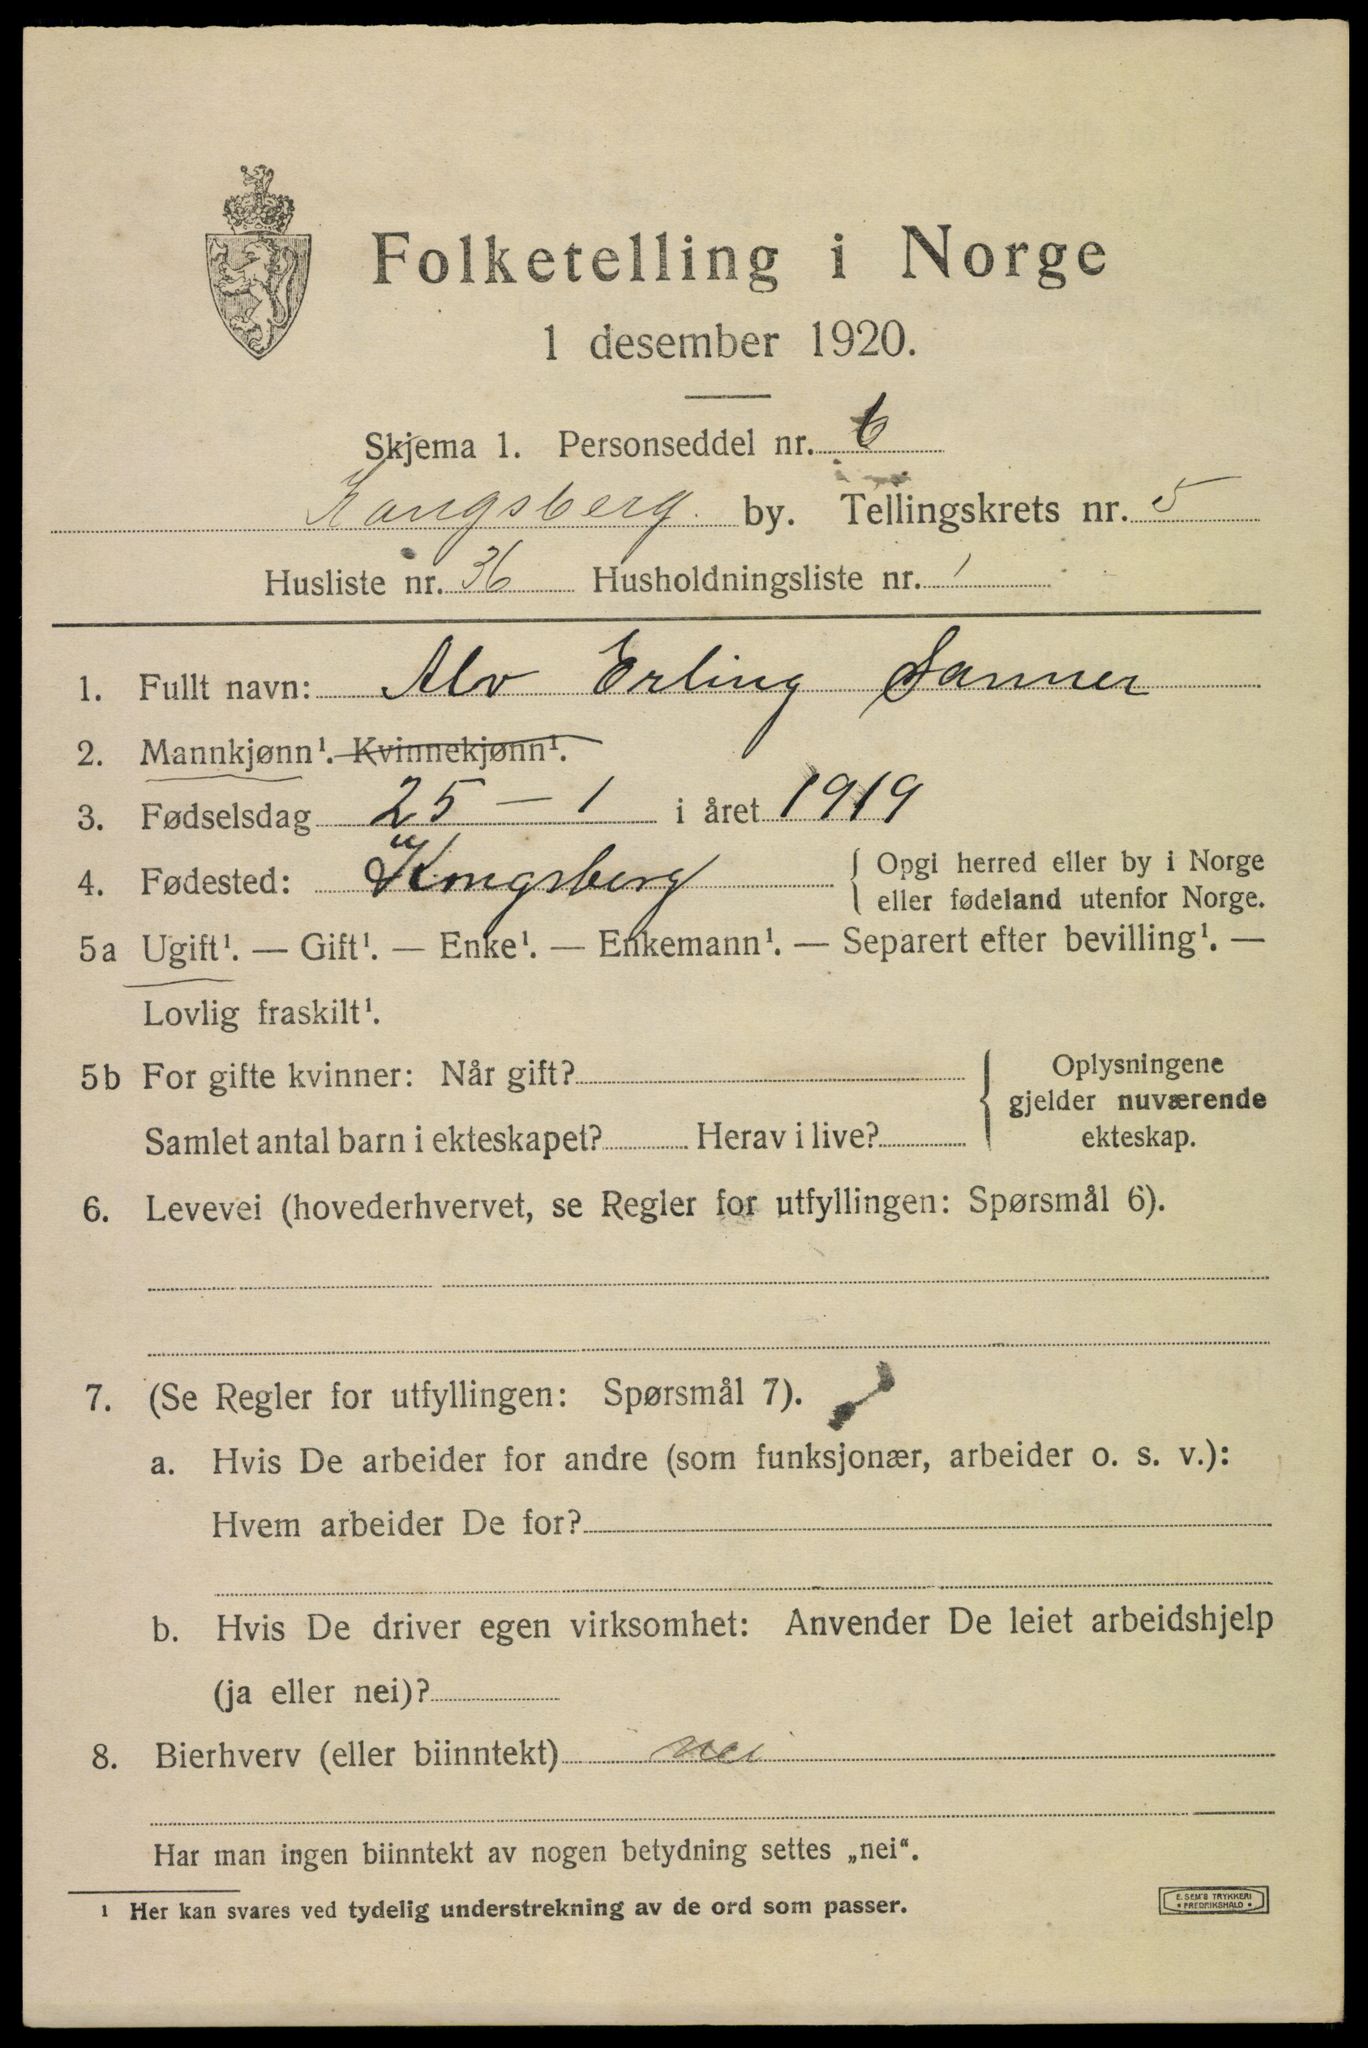 Folketelling i Norge
1 desember 1920.
Skjema 1. Personseddel nr. 6
Kongsberg. by. Tellingskrets nr. 5
Husliste nr. 36 Husholdningsliste nr. 1
1. Fullt navn: Alv Erling Sanner
2. Mannkjønn¹. Kvinnekjønn¹.
3. Fødselsdag 25 – 1 i året 1919
4. Fødested: Kongsberg { Opgi herred eller by i Norge
eller fødeland utenfor Norge.
5a Ugift¹. — Gift¹. — Enke¹. — Enkemann¹. — Separert efter bevilling¹. —
Lovlig fraskilt¹.
5b For gifte kvinner: Når gift?
Samlet antal barn i ekteskapet? Herav i live?
Oplysningene
gjelder nuværende
ekteskap.
6. Levevei (hovederhvervet, se Regler for utfyllingen: Spørsmål 6).
7. (Se Regler for utfyllingen: Spørsmål 7).
a. Hvis De arbeider for andre (som funksjonær, arbeider o. s. v.):
Hvem arbeider De for?
b. Hvis De driver egen virksomhet: Anvender De leiet arbeidshjelp
(ja eller nei)?
8. Bierhverv (eller biinntekt) nei
Har man ingen biinntekt av nogen betydning settes „nei“.
¹ Her kan svares ved tydelig understrekning av de ord som passer.
E. SEM'S TRYKKERI
* FREDRIKSHALD *